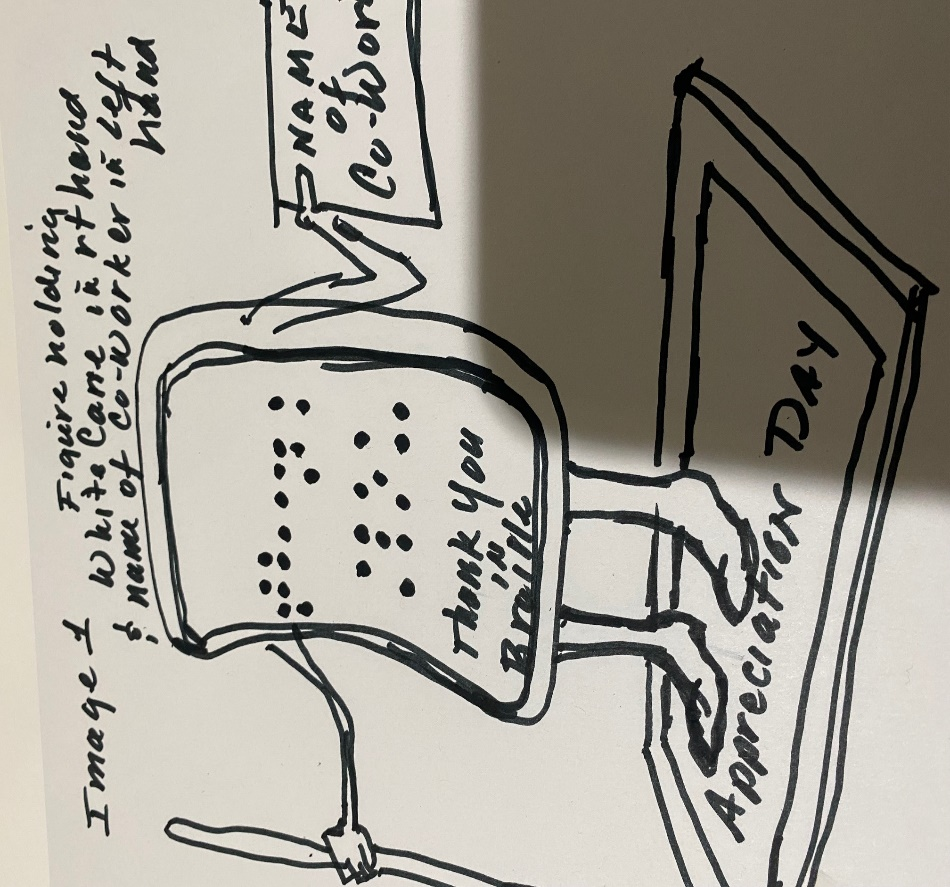 Figure holding
Image 1 White Cane in rt hand
& name of co-worker in Left
hand
NAME
of
Co-Wor
Thank You
IN
Braille
AppreciATION DAY